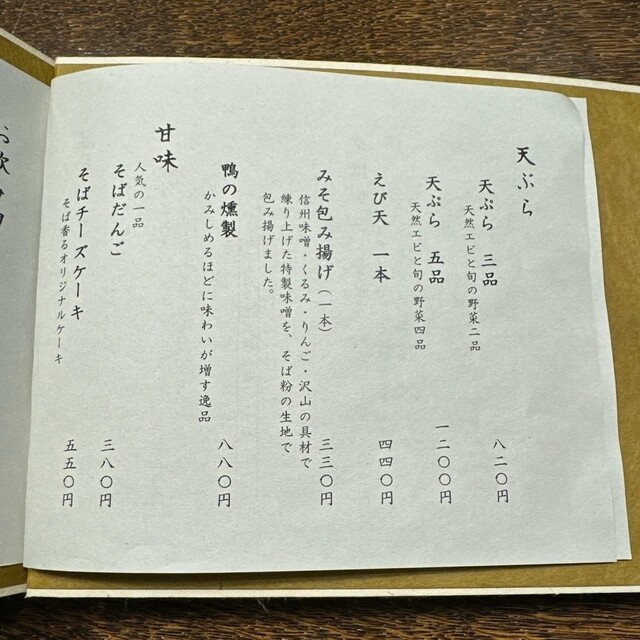 天ぷら
天ぷら 三品
天然エビと旬の野菜二品
八二〇円
天ぷら 五品
天然エビと旬の野菜四品
一二〇〇円
えび天 一本
四四〇円
みそ包み揚げ（一本）
三三〇円
信州味噌・くるみ・りんご・沢山の具材で
練り上げた特製味噌を、そば粉の生地で
包み揚げました。
鴨の燻製
かみしめるほどに味わいが増す逸品
八八〇円
甘味
人気の一品
そばだんご
三八〇円
そばチーズケーキ
そば香るオリジナルケーキ
五五〇円